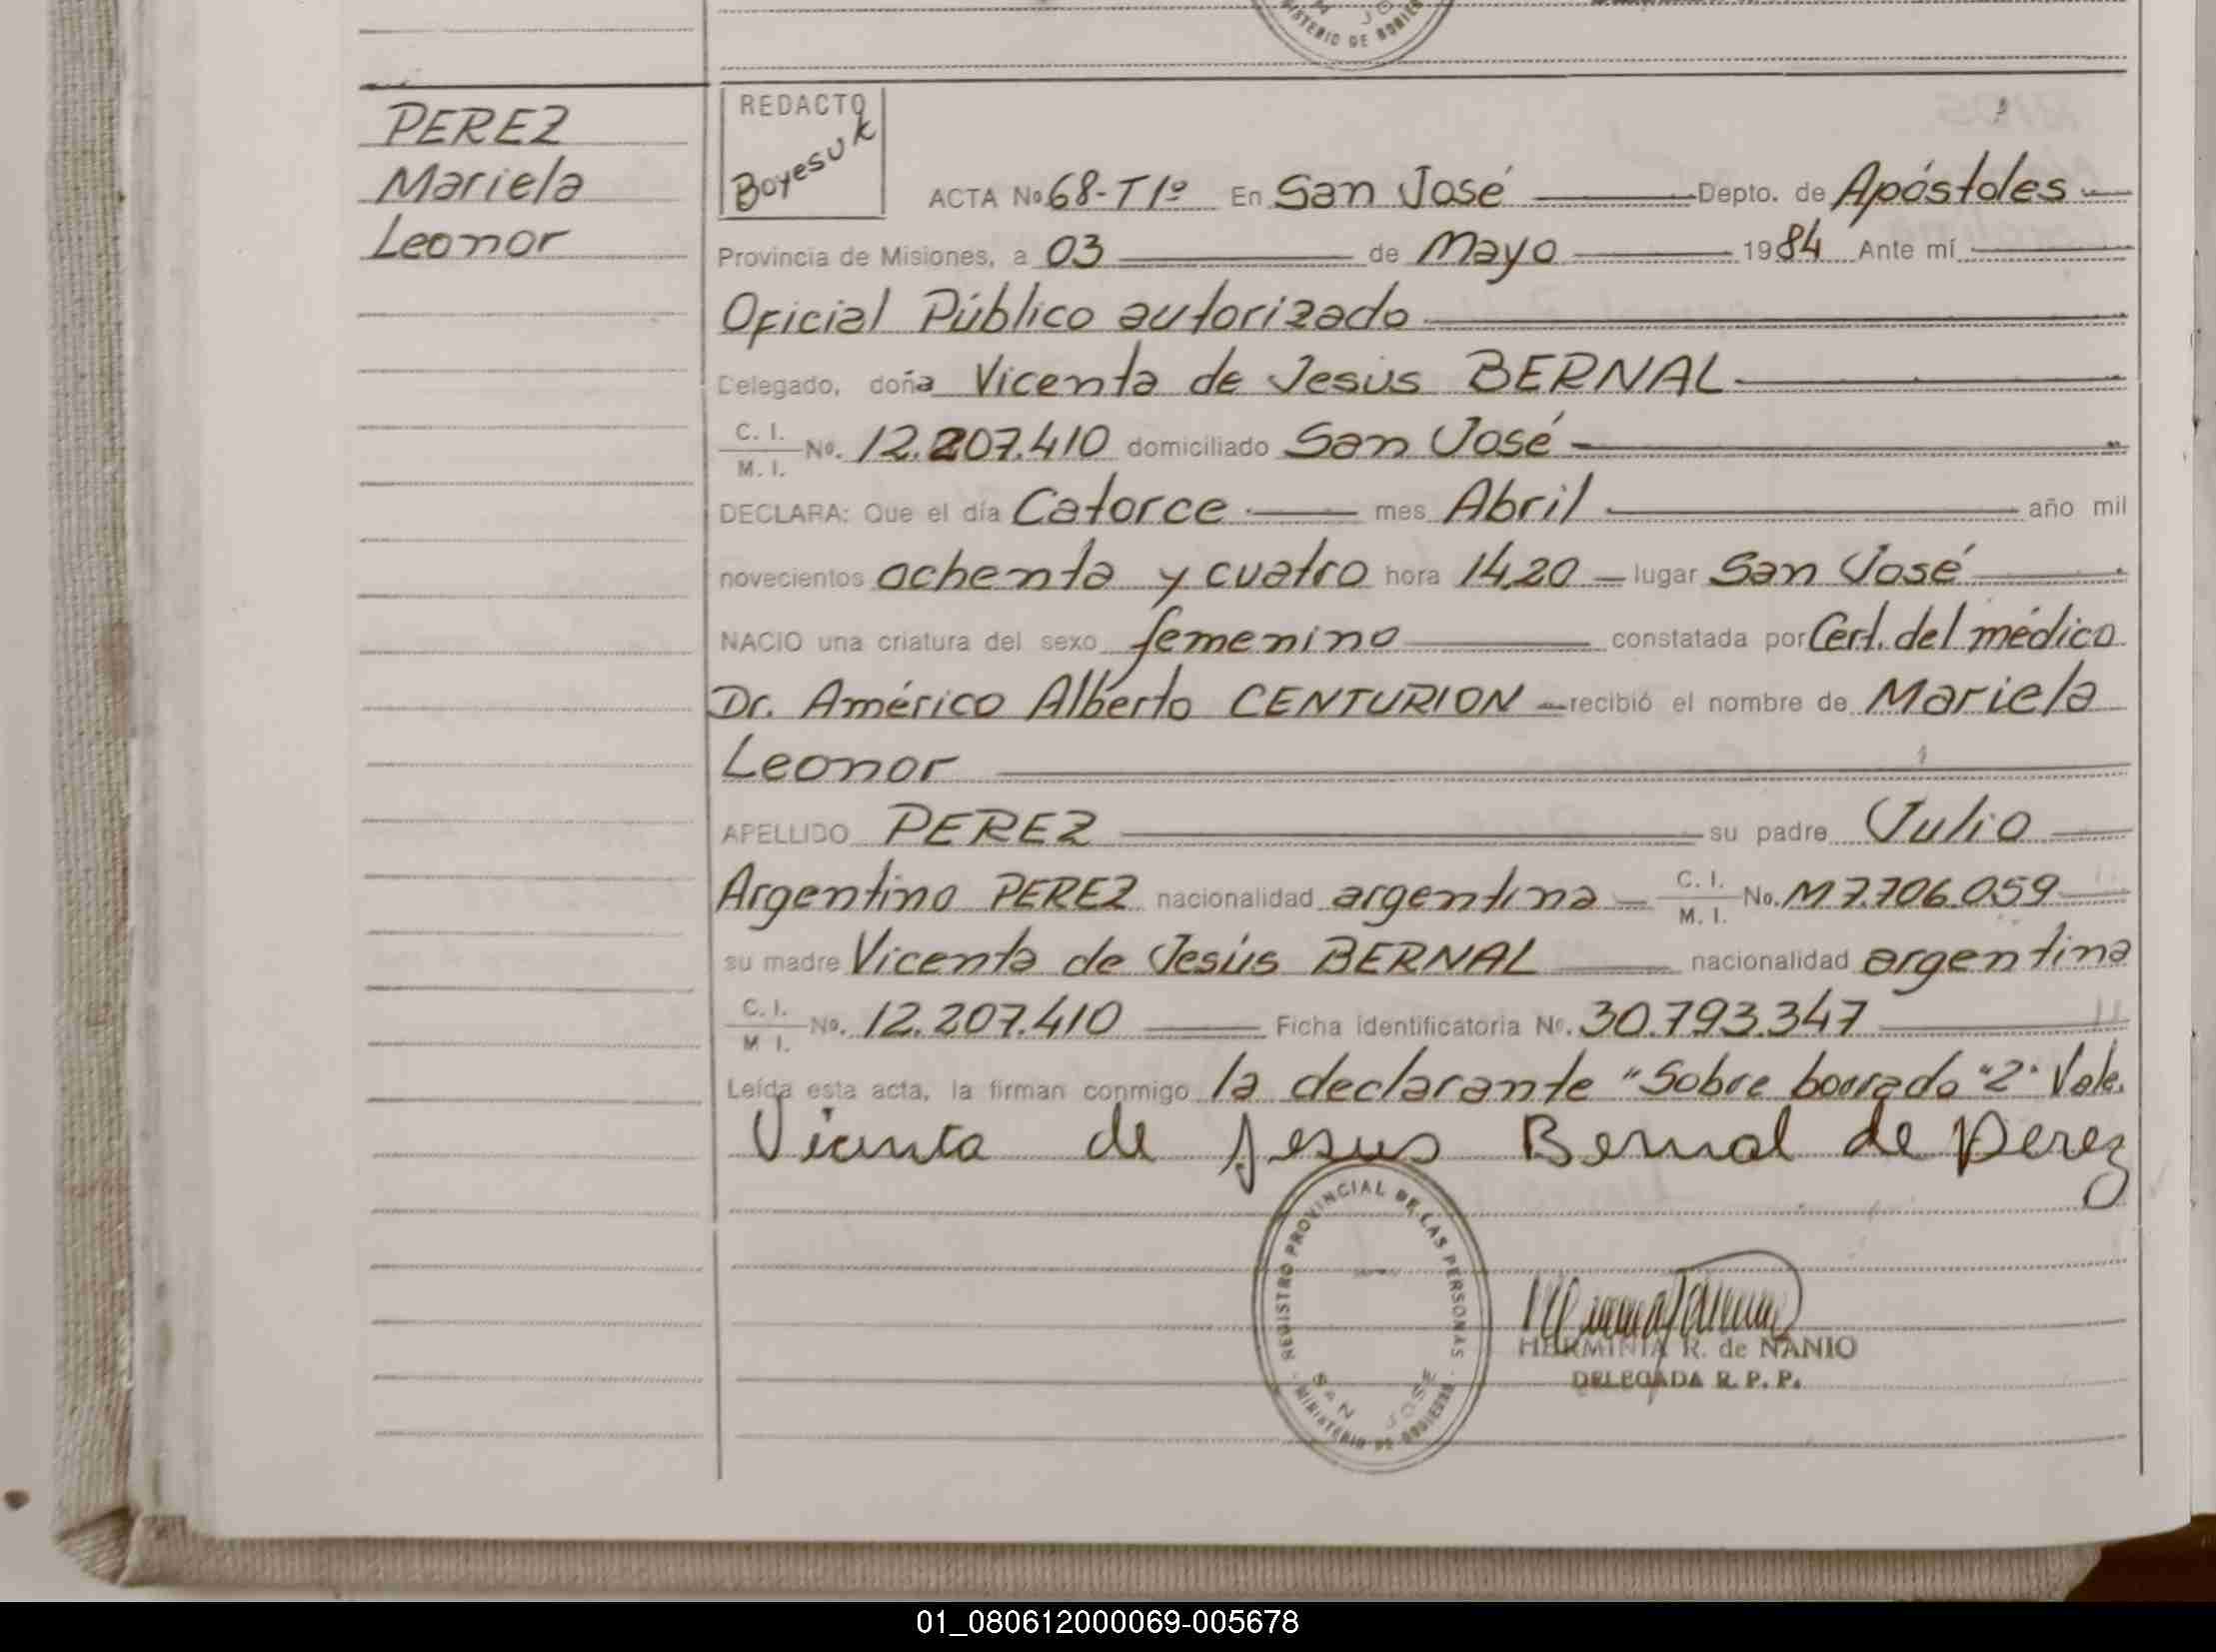 MINISTERIO DE GOBIERNO
PEREZ
Mariela
Leonor
REDACTO
Boyesuk
ACTA No 68-T1º En San José Depto. de Apóstoles
Provincia de Misiones, a 03 de Mayo 1984 Ante mí
Oficial Público autorizado
Delegado, doña Vicenta de Jesús BERNAL
C. I.
M. I. No. 12.207.410 domiciliado San José
DECLARA: Que el día Catorce mes Abril año mil
novecientos ochenta y cuatro hora 14,20 lugar San José
NACIO una criatura del sexo femenino constatada por Cert. del médico
Dr. Américo Alberto CENTURION recibió el nombre de Mariela
Leonor
APELLIDO PEREZ su padre Julio
Argentino PEREZ nacionalidad argentina C. I. M. I. No. M 7.706.059
su madre Vicenta de Jesús BERNAL nacionalidad argentina
C. I.
M I. No. 12.207.410 Ficha identificatoria No. 30.793.347
Leída esta acta, la firman conmigo la declarante "Sobre borrado "2" Vale.
Vicenta de Jesus Bernal de Perez
REGISTRO PROVINCIAL DE LAS PERSONAS
SAN JOSE
MINISTERIO DE GOBIERNO
HERMINIA R. de NANIO
DELEGADA R. P. P.
01_080612000069-005678